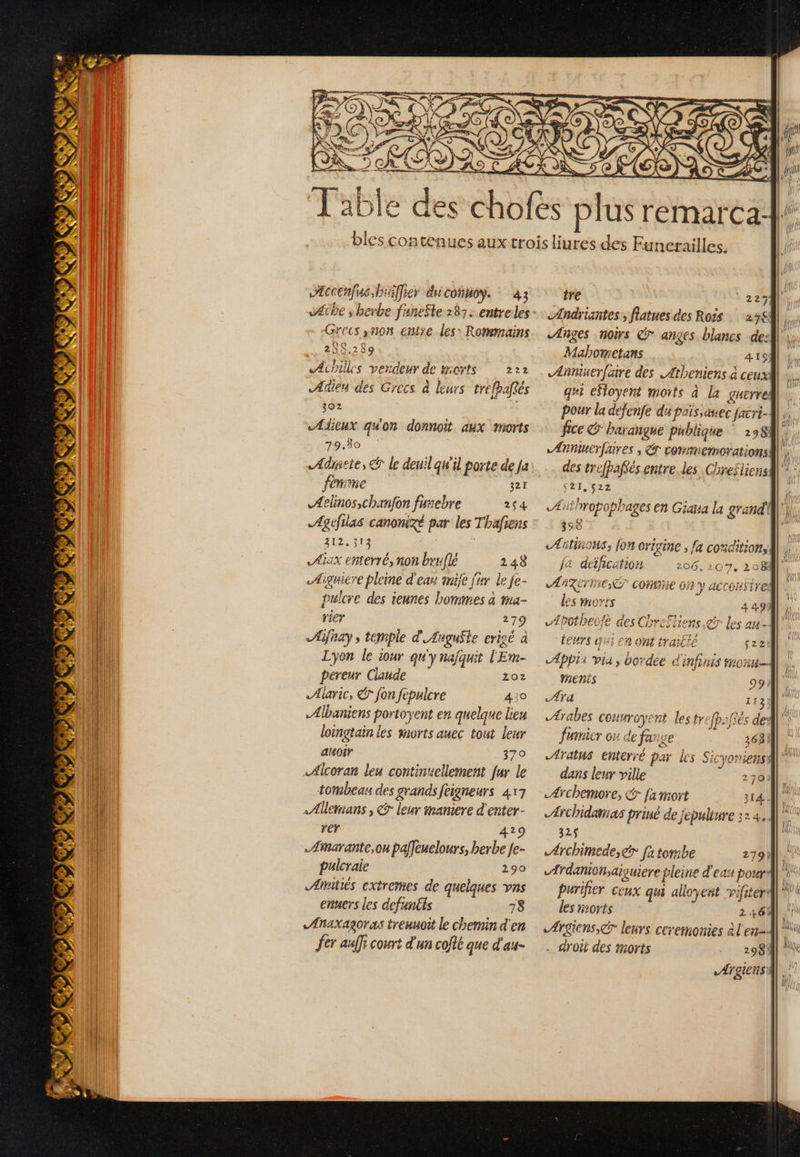 Table des choſes plus remarca-
bles contenues aux trois liures des Funerailles.
Accenſus, huiſſier du conuoy. 43
Ache, herbe funeſte 287. entre les
Grecs, non entre les Rommains
288.289
Achilles vendeur de morts 222
Adieu des Grecs à leurs treſpaſſés
302
Adieux qu'on donnoit aux morts
79.80
Admete, & le deuil qu'il porte de ſa
femme 321
Aelinos, chanſon funebre 254
Ageſilas canonizé par les Thaſiens
312.313
Aiax enterré, non bruſlé 248
Aiguiere pleine d'eau miſe ſur le ſe-
pulcre des ieunes hommes à ma-
rier 279
Aiſnay, temple d'Auguſte erigé à
Lyon le iour qu'y naſquit l'Em-
pereur Claude 202
Alaric, & ſon ſepulcre 430
Albaniens portoyent en quelque lieu
loingtain les morts auec tout leur
auoir 370
Alcoran leu continuellement ſur le
tombeau des grands ſeigneurs 417
Allemans, & leur maniere d'enter-
rer 429
Amarante, ou paſſeuelours, herbe ſe-
pulcrale 290
Amitiés extremes de quelques vns
enuers les defuncts 78
Anaxagoras trenuoit le chemin d'en
fer auſſi court d'un coſté que d'au-
tre 227
Andriantes, ſtatues des Rois 278
Anges noirs & anges blancs des
Mahometans 419
Anniuerſaire des Atheniens à ceux
qui eſtoyent morts à la guerre
pour la defenſe du païs, auec ſacri-
fice & harangue publique 298
Anniuerſaires, & commemorations
des treſpaſſés entre les Chreſtiens
521.522
Anthropophages en Giaua la grand'
398
Antinous, ſon origine, ſa condition,
ſa deification 206.207.208
Anzerme, & comme on y accouſtre
les morts 449
Apotheoſe des Chreſtiens, & les au-
teurs qui en ont traicté 522
Appia via, bordée d'infinis monu-
ments 99
Ara 113
Arabes couuroyent les treſpaſſés de
fumier ou de fange 363
Aratus enterré par les Sicyoniens
dans leur ville 270
Archemore, & ſa mort 314
Archidamas priué de ſepulture 324.
325
Archimede, & ſa tombe 279
Ardanion, aiguiere pleine d'eau pour
purifier ceux qui alloyent viſiter
les morts 246
Argiens, & leurs ceremonies à l'en-
droit des morts 298
Argiens